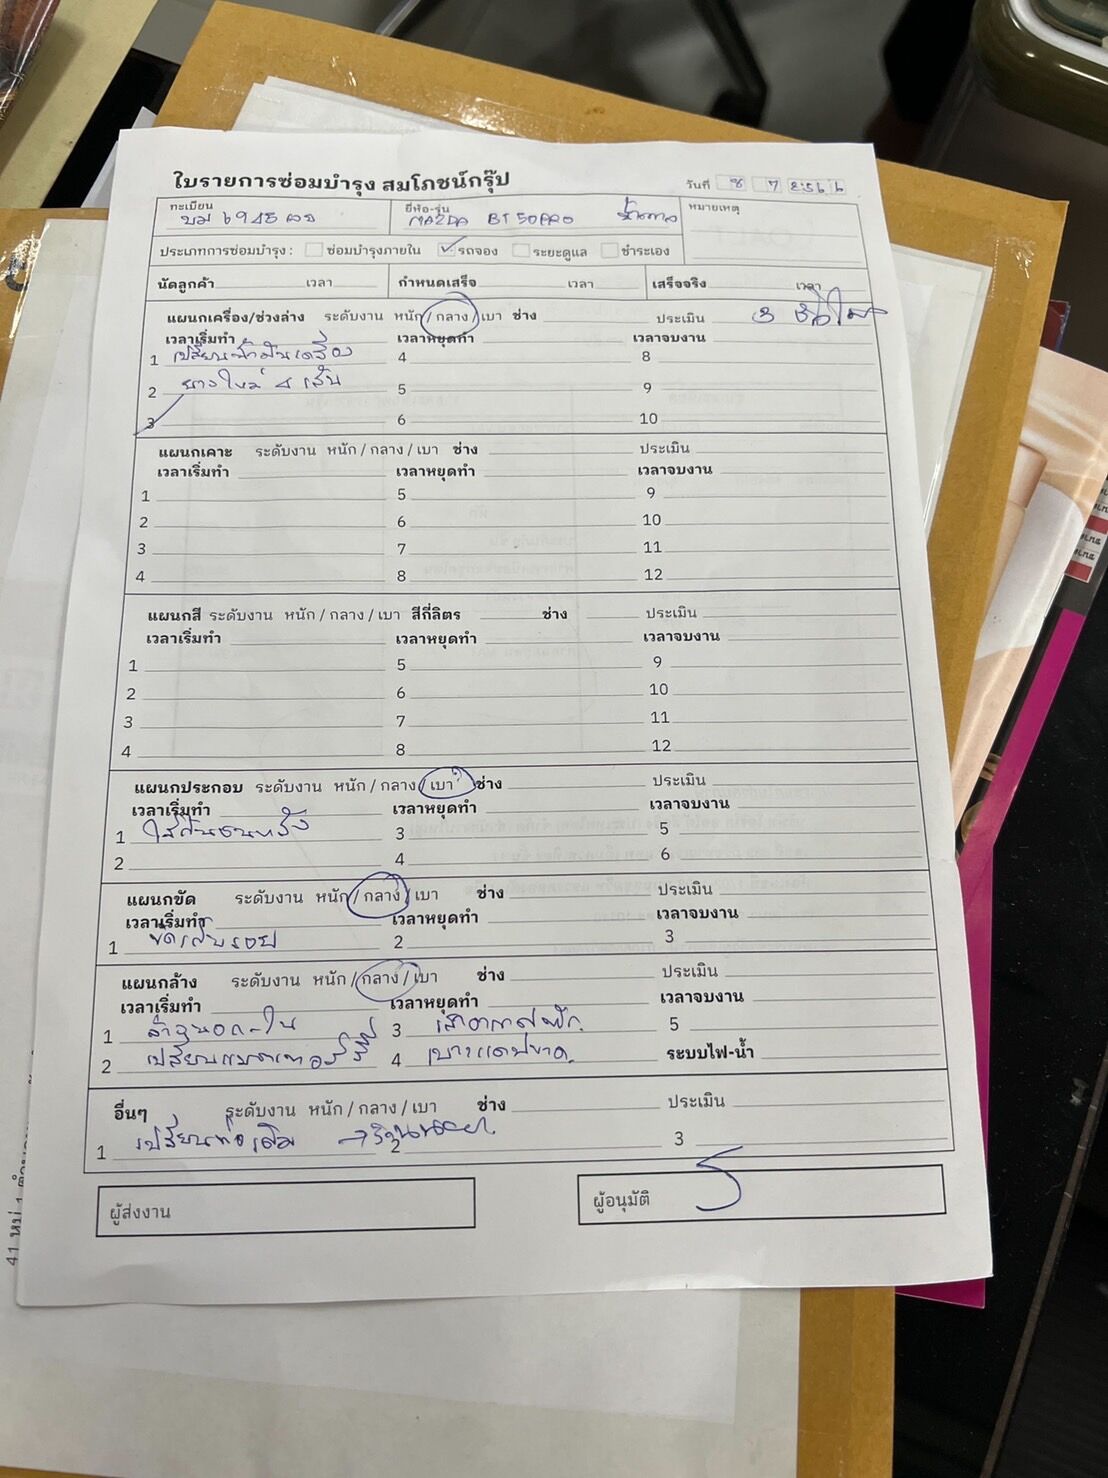 ใบรายการซ่อมบำรุง สมโภชน์กรุ๊ป
วันที่ 8 7 2566
ทะเบียน ยี่ห้อ-รุ่น หมายเหตุ
บม 6945 MAZDA BT50PRO น้ำตาล
ประเภทการซ่อมบำรุง : ซ่อมบำรุงภายใน ✓ รถจอง ระยะดูแล ชำระเอง
นัดลูกค้า เวลา กำหนดเสร็จ เวลา เสร็จจริง เวลา
แผนกเครื่อง/ช่วงล่าง ระดับงาน หนัก / กลาง / เบา ช่าง ประเมิน 3 ชั่วโมง
เวลาเริ่มทำ เวลาหยุดทำ เวลาจบงาน
1 เปลี่ยนน้ำมันเครื่อง 4 8
2 ยางใหม่ 4 เส้น 5 9
3 6 10
แผนกเคาะ ระดับงาน หนัก / กลาง / เบา ช่าง ประเมิน
เวลาเริ่มทำ เวลาหยุดทำ เวลาจบงาน
1 5 9
2 6 10
3 7 11
4 8 12
แผนกสี ระดับงาน หนัก / กลาง / เบา สีกี่ลิตร ช่าง ประเมิน
เวลาเริ่มทำ เวลาหยุดทำ เวลาจบงาน
1 5 9
2 6 10
3 7 11
4 8 12
แผนกประกอบ ระดับงาน หนัก / กลาง / เบา ช่าง ประเมิน
เวลาเริ่มทำ เวลาหยุดทำ เวลาจบงาน
1 ใส่กันชนหลัง 3 5
2 4 6
แผนกขัด ระดับงาน หนัก / กลาง / เบา ช่าง ประเมิน
เวลาเริ่มทำ เวลาหยุดทำ เวลาจบงาน
1 ขัดลบรอย 2 3
แผนกล้าง ระดับงาน หนัก / กลาง / เบา ช่าง ประเมิน
เวลาเริ่มทำ เวลาหยุดทำ เวลาจบงาน
1 ล้างนอก-ใน 3 5
2 เปลี่ยนแบตเตอรี่ 4 ระบบไฟ-น้ำ
อื่นๆ ระดับงาน หนัก / กลาง / เบา ช่าง ประเมิน
1 เปลี่ยนท่อเดิม 2 3
ผู้ส่งงาน ผู้อนุมัติ